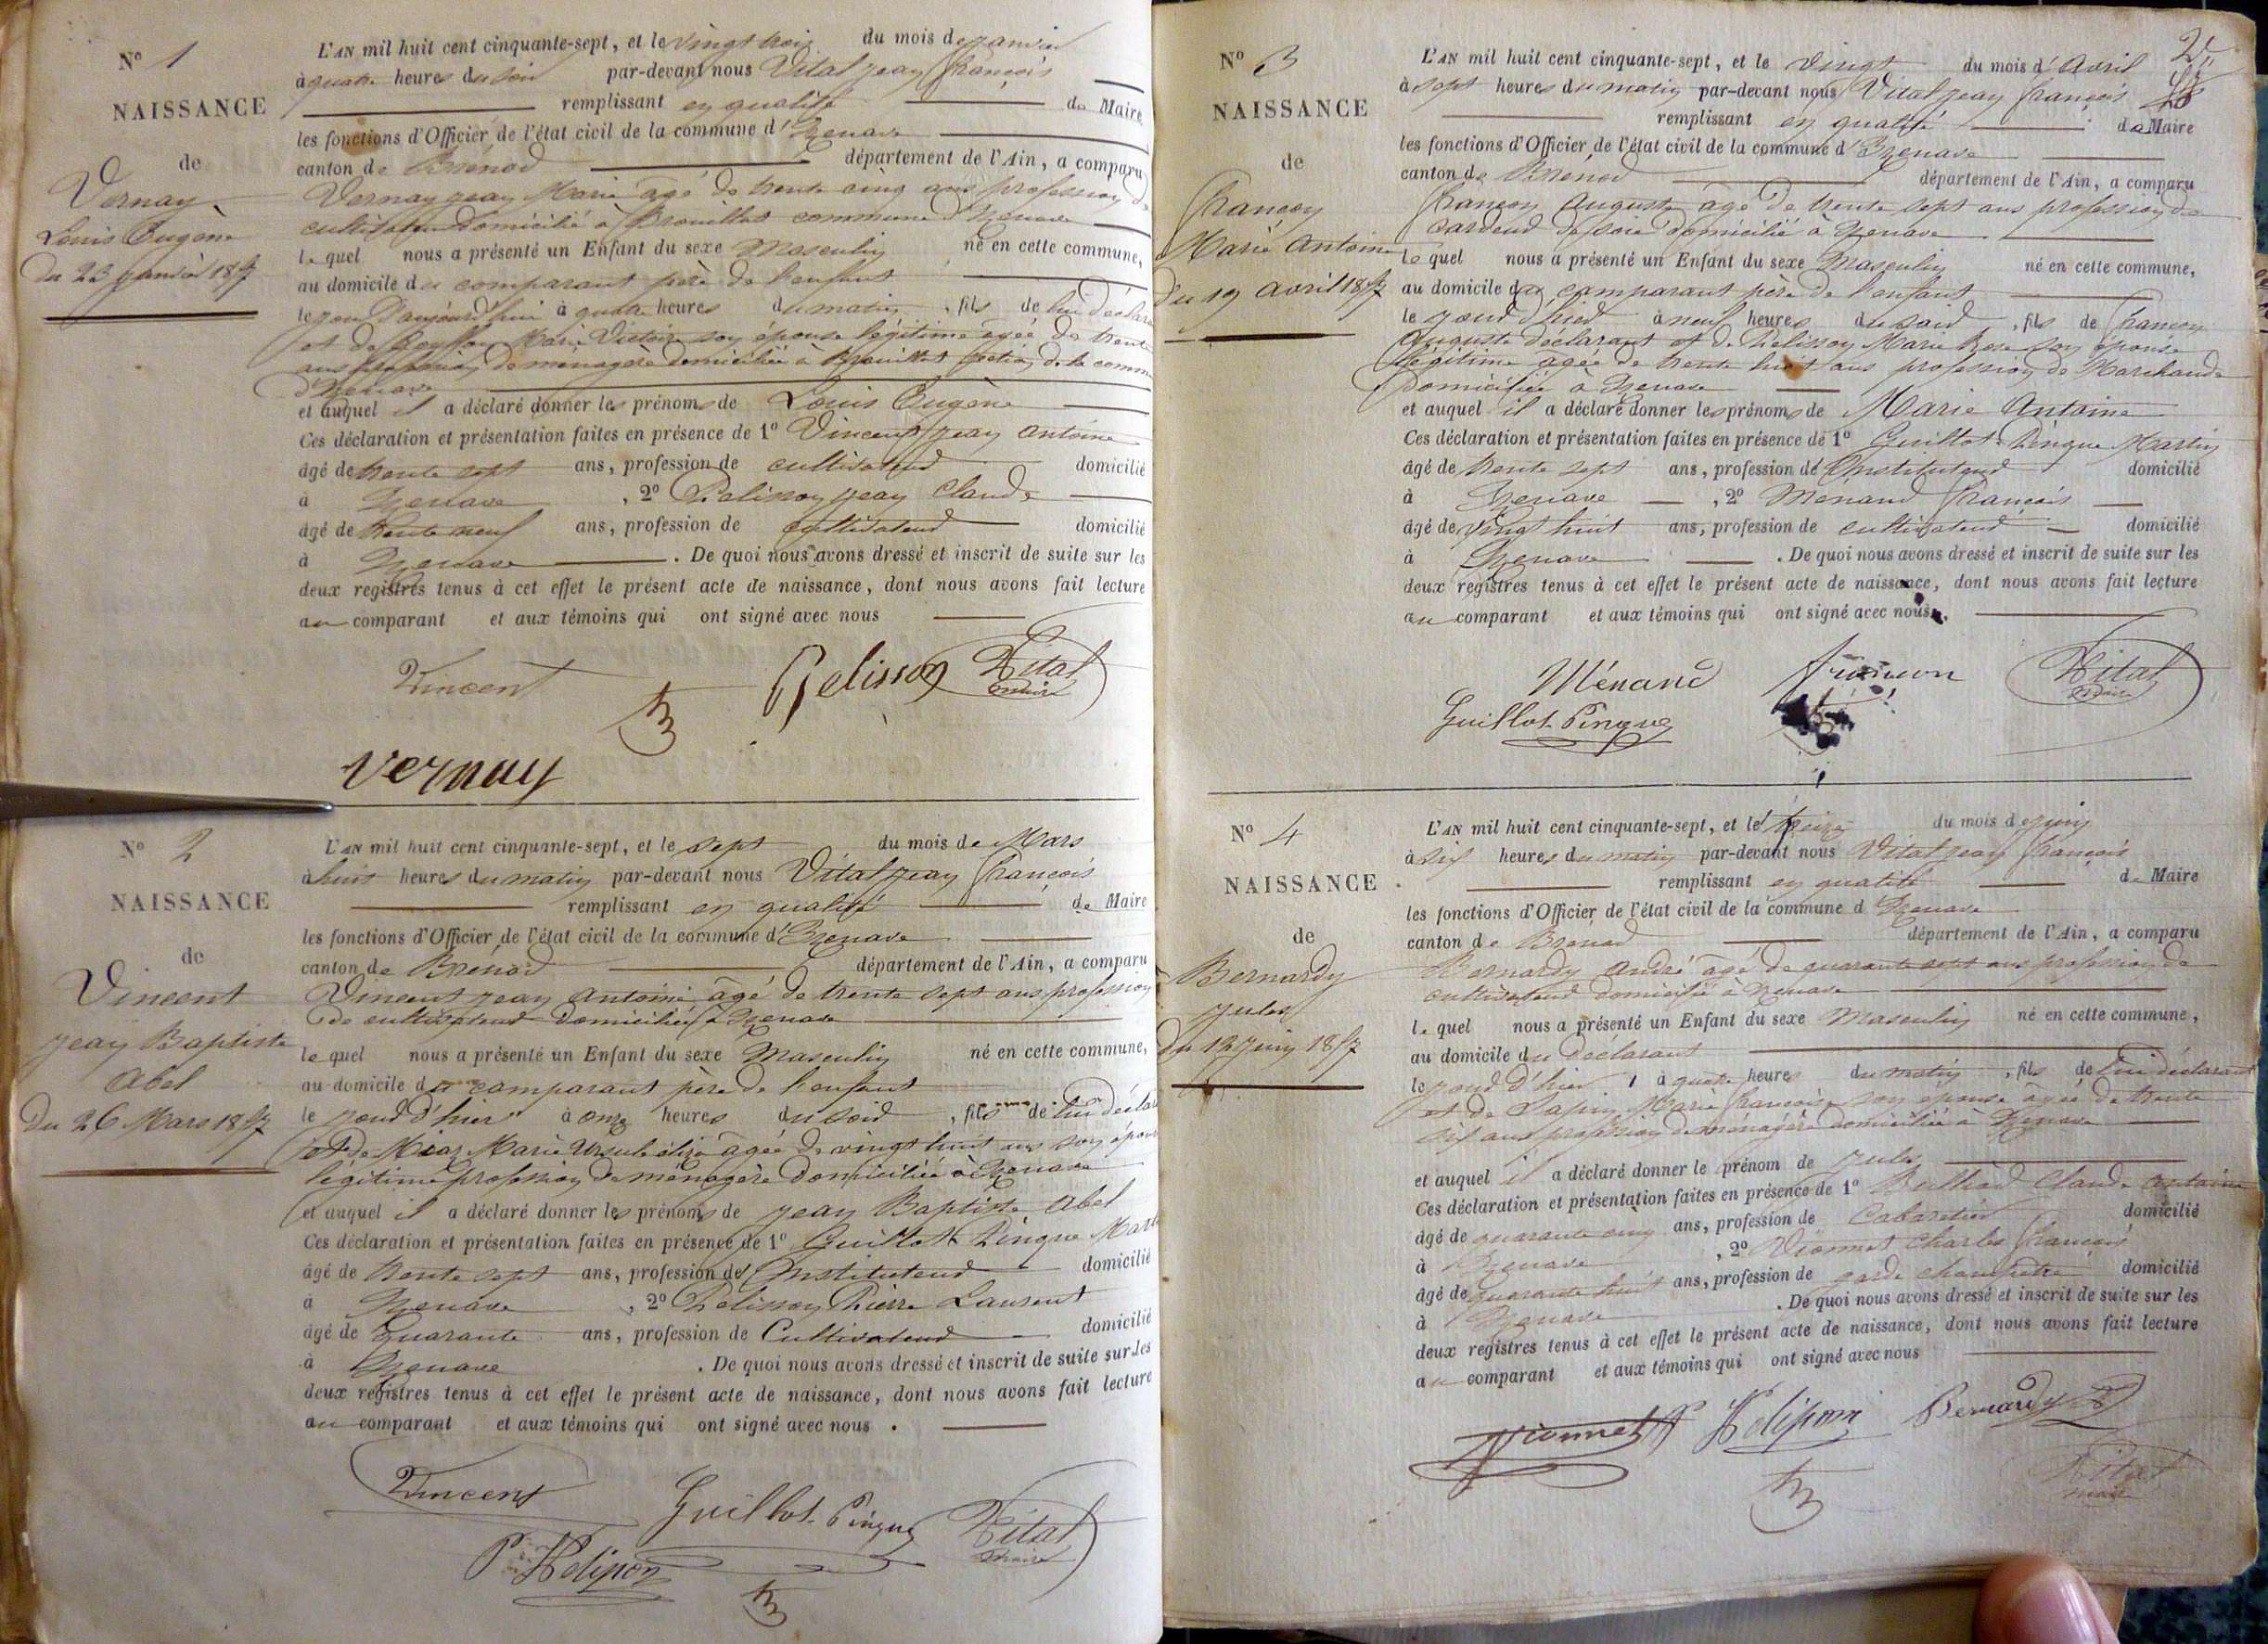 N° 1
NAISSANCE
de
Vernay
Louis Eugène
du 23 janvier 1857
L'AN mil huit cent cinquante-sept, et le vingt trois du mois de janvier
à quatre heures du soir par-devant nous Vital Jean François
remplissant en qualité de Maire
les fonctions d'Officier de l'état civil de la commune d'Izenave
canton de Brénod département de l'Ain, a comparu
Vernay Jean Marie âgé de trente cinq ans profession de
cultivateur domicilié à Brouillat commune d'Izenave
lequel nous a présenté un Enfant du sexe Masculin né en cette commune,
au domicile du comparant père de l'enfant
le jour d'aujourd'hui à quatre heures du matin, fils de lui déclara
et de Marie Victoire son épouse légitime âgée de trente
ans profession de ménagère domiciliée à Brouillat de la comm
d'Izenave
et auquel il a déclaré donner les prénoms de Louis Eugène
Ces déclaration et présentation faites en présence de 1° Vincent Jean Antoine
âgé de trente sept ans, profession de cultivateur domicilié
à Izenave, 2° Pelisson Jean Claude
âgé de trente neuf ans, profession de cultivateur domicilié
à Izenave. De quoi nous avons dressé et inscrit de suite sur les
deux registres tenus à cet effet le présent acte de naissance, dont nous avons fait lecture
au comparant et aux témoins qui ont signé avec nous
Vincent Pelisson Vital
maire
Vernay
N° 2
NAISSANCE
de
Vincent
Jean Baptiste
Abel
du 26 Mars 1857
L'AN mil huit cent cinquante-sept, et le sept du mois de Mars
à huit heures du matin par-devant nous Vital Jean François
remplissant en qualité de Maire
les fonctions d'Officier de l'état civil de la commune d'Izenave
canton de Brénod département de l'Ain, a comparu
Vincent Jean Antoine âgé de trente sept ans profession
de cultivateur domicilié à Izenave
lequel nous a présenté un Enfant du sexe Masculin né en cette commune,
au domicile du comparant père de l'enfant
le jour d'hier à onze heures du soir, fils de lui décla
et de Marie Ursule âgée de vingt huit ans son épou
légitime profession de ménagère domiciliée à Izenave
et auquel il a déclaré donner les prénoms de Jean Baptiste Abel
Ces déclaration et présentation faites en présence de 1° Guillot Pingue Mart
âgé de trente sept ans, profession de Instituteur domicilié
à Izenave, 2° Pelisson Pierre Laurent
âgé de Quarante ans, profession de Cultivateur domicilié
à Izenave. De quoi nous avons dressé et inscrit de suite sur les
deux registres tenus à cet effet le présent acte de naissance, dont nous avons fait lecture
au comparant et aux témoins qui ont signé avec nous.
Vincent Guillot-Pingue Vital
P Pelisson maire
N° 3
NAISSANCE
de
Francon
Marie Antoine
du 19 avril 1857
L'AN mil huit cent cinquante-sept, et le vingt du mois d'avril
à sept heures du matin par-devant nous Vital Jean François
remplissant en qualité de Maire
les fonctions d'Officier de l'état civil de la commune d'Izenave
canton de Brénod département de l'Ain, a comparu
Francon Auguste âgé de trente sept ans profession de
cardeur de soie domicilié à Izenave
lequel nous a présenté un Enfant du sexe Masculin né en cette commune,
au domicile du comparant père de l'enfant
le jour d'hier à neuf heures du soir, fils de Francon
Auguste déclarant et de Pelisson Marie Rose son épouse
légitime âgée de trente huit ans profession de Marchande
domiciliée à Izenave
et auquel il a déclaré donner les prénoms de Marie Antoine
Ces déclaration et présentation faites en présence de 1° Guillot-Pingue Martin
âgé de trente sept ans, profession de Instituteur domicilié
à Izenave, 2° Menand François
âgé de vingt huit ans, profession de cultivateur domicilié
à Izenave. De quoi nous avons dressé et inscrit de suite sur les
deux registres tenus à cet effet le présent acte de naissance, dont nous avons fait lecture
au comparant et aux témoins qui ont signé avec nous.
Ménand francon Vital
Guillot-Pingue maire
N° 4
NAISSANCE
de
Bernardy
Jules
du 12 juin 1857
L'AN mil huit cent cinquante-sept, et le treize du mois de juin
à six heures du matin par-devant nous Vital Jean François
remplissant en qualité de Maire
les fonctions d'Officier de l'état civil de la commune d'Izenave
canton de Brénod département de l'Ain, a comparu
Bernardy André âgé de quarante sept ans profession de
cultivateur domicilié à Izenave
lequel nous a présenté un Enfant du sexe Masculin né en cette commune,
au domicile du déclarant
le jour d'hier, à quatre heures du matin, fils de lui déclarant
et de Sapin Marie Françoise son épouse âgée de trente
six ans profession de ménagère domiciliée à Izenave
et auquel il a déclaré donner le prénom de Jules
Ces déclaration et présentation faites en présence de 1° Claude Antoine
âgé de quarante cinq ans, profession de Cabaretier domicilié
à Izenave, 2° Vionnet Charles François
âgé de quarante huit ans, profession de garde champêtre domicilié
à Izenave. De quoi nous avons dressé et inscrit de suite sur les
deux registres tenus à cet effet le présent acte de naissance, dont nous avons fait lecture
au comparant et aux témoins qui ont signé avec nous
Vionnet Pelisson Bernardy
Vital
maire